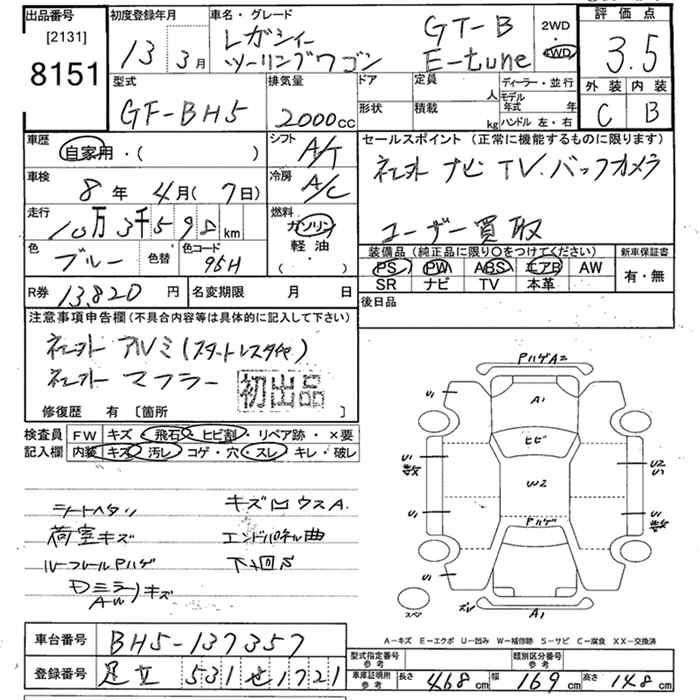 出品番号
[2131]
8151
初度登録年月
13 年 3月
車名・グレード
レガシィ ツーリングワゴン
GT-B E-tune
2WD
4WD
評価点
3.5
外装 内装
C B
型式
GF-BH5
排気量
2000cc
ドア
形状
定員 人
積載 kg
ディーラー・並行
モデル年式 年
ハンドル 左・右
車歴
自家用・( )
車検
8年 4月(7日)
走行
10万3千598km
色
ブルー
色替
色コード
95H
シフト
A/T
冷房
A/C
燃料
ガソリン
軽油
( ・ )
セールスポイント(正常に機能するものに限ります)
社外 ナビ TV. バックカメラ
ユーザー買取
装備品(純正品に限り○をつけてください)
PS PW ABS エアB AW
SR ナビ TV 本革
新車保証書
有・無
R券 13,820円
名変期限 月 日
後日品
注意事項申告欄(不具合内容等は具体的に記入して下さい)
社外 アルミ(スタートレスタイヤ)
社外 マフラー
初出品
修復歴 有 [箇所 ]
検査員記入欄
FW キズ・飛石・ヒビ割・リペア跡・×要
内装 キズ・汚レ・コゲ・穴・スレ・キレ・破レ
シートヘタリ
荷室キズ
ルーフレールPハゲ
Dミラーキズ
AW
キズ凹 ウスA.
エンドパネル曲
下廻サビ
PハゲA2
A1
U1
ヒビ
U1
数
U2
U1
W2
U1
U1
数
Pハゲ
U1
スペア
ズレ
A1
A-キズ E-エクボ U-凹み W-補修跡 S-サビ C-腐食 XX-交換済
車台番号
BH5-137357
登録番号
足立 531 せ 1721
型式指定番号
参考
類別区分番号
参考
車庫証明用
参考
長さ 468cm 幅 169cm 高さ 148cm